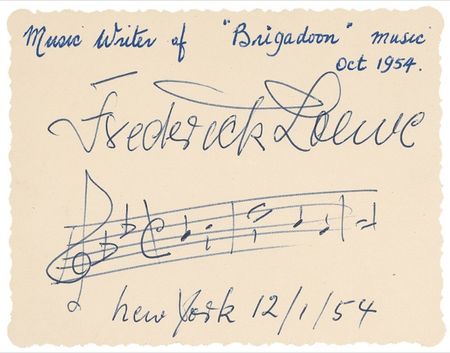 Music Writer of "Brigadoon" music
Oct 1954.
Frederick Loewe
New York 12/1/54